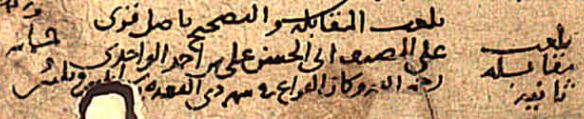 بلغت المقابلة والتصحيح باصل قرئ
على المصنف ابى الحسن على بن احمد الواحدى
رحمه الله وكان الفراغ فى شهر ذى القعده
بلغت
مقابلة
ثانية